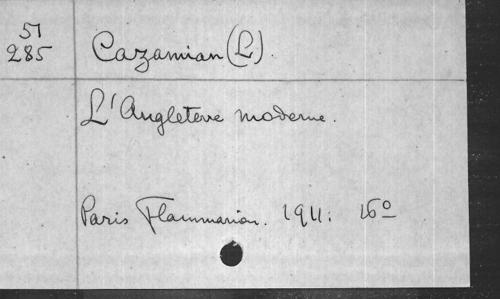 51
285
Cazamian (L).
L'Angleterre moderne.
Paris Flammarion. 1911. 16º